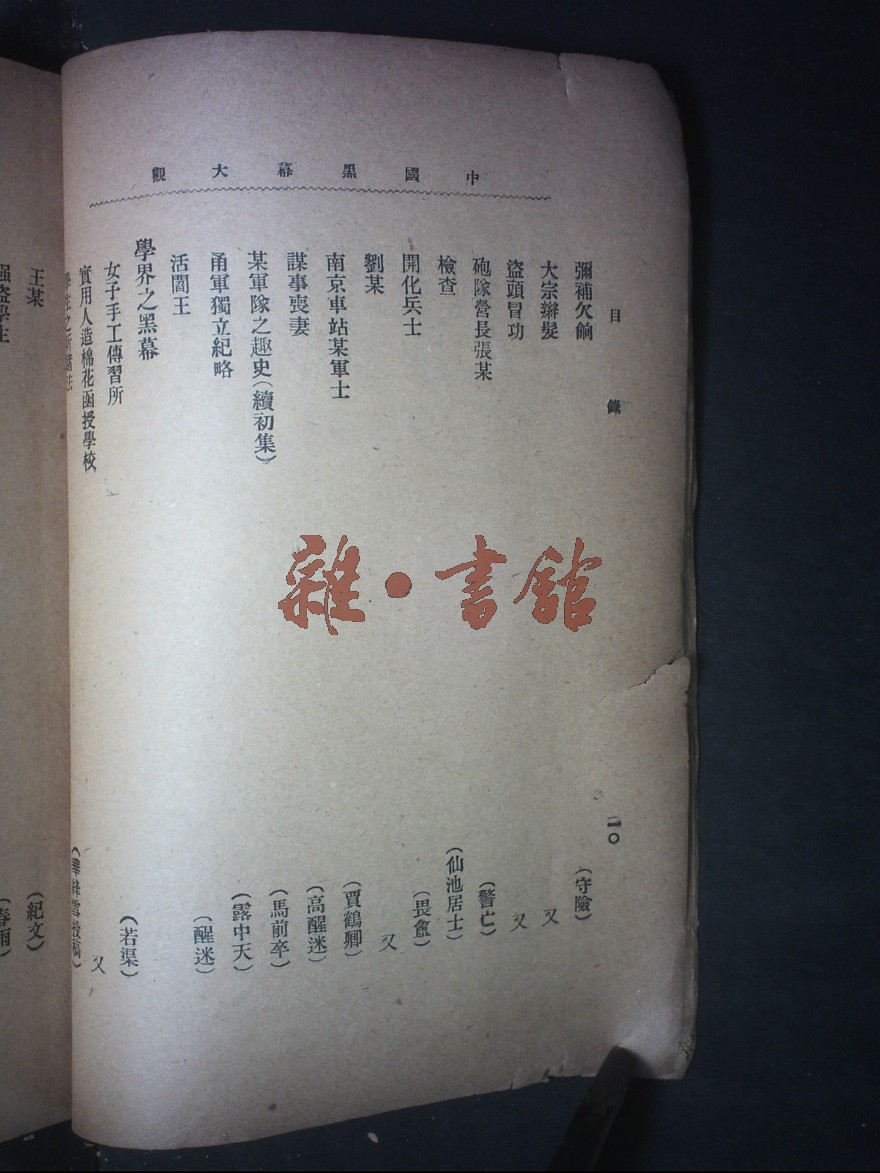 中國黑幕大觀
目錄 二〇
彌補欠餉 (守險)
大宗辮髮 又
盜頭冒功 又
砲隊營長張某 (警亡)
檢查 (仙池居士)
開化兵士 (畏盦)
劉某 又
南京車站某軍士 (賈鶴卿)
謀事喪妻 (高醒迷)
某軍隊之趣史(續初集) (馬前卒)
甬軍獨立紀略 (露中天)
活閻王 (醒迷)
學界之黑幕
女子手工傳習所 (若渠)
實用人造棉花函授學校 又
王某 (紀文)
強盜學生 (春雨)
雜·書館